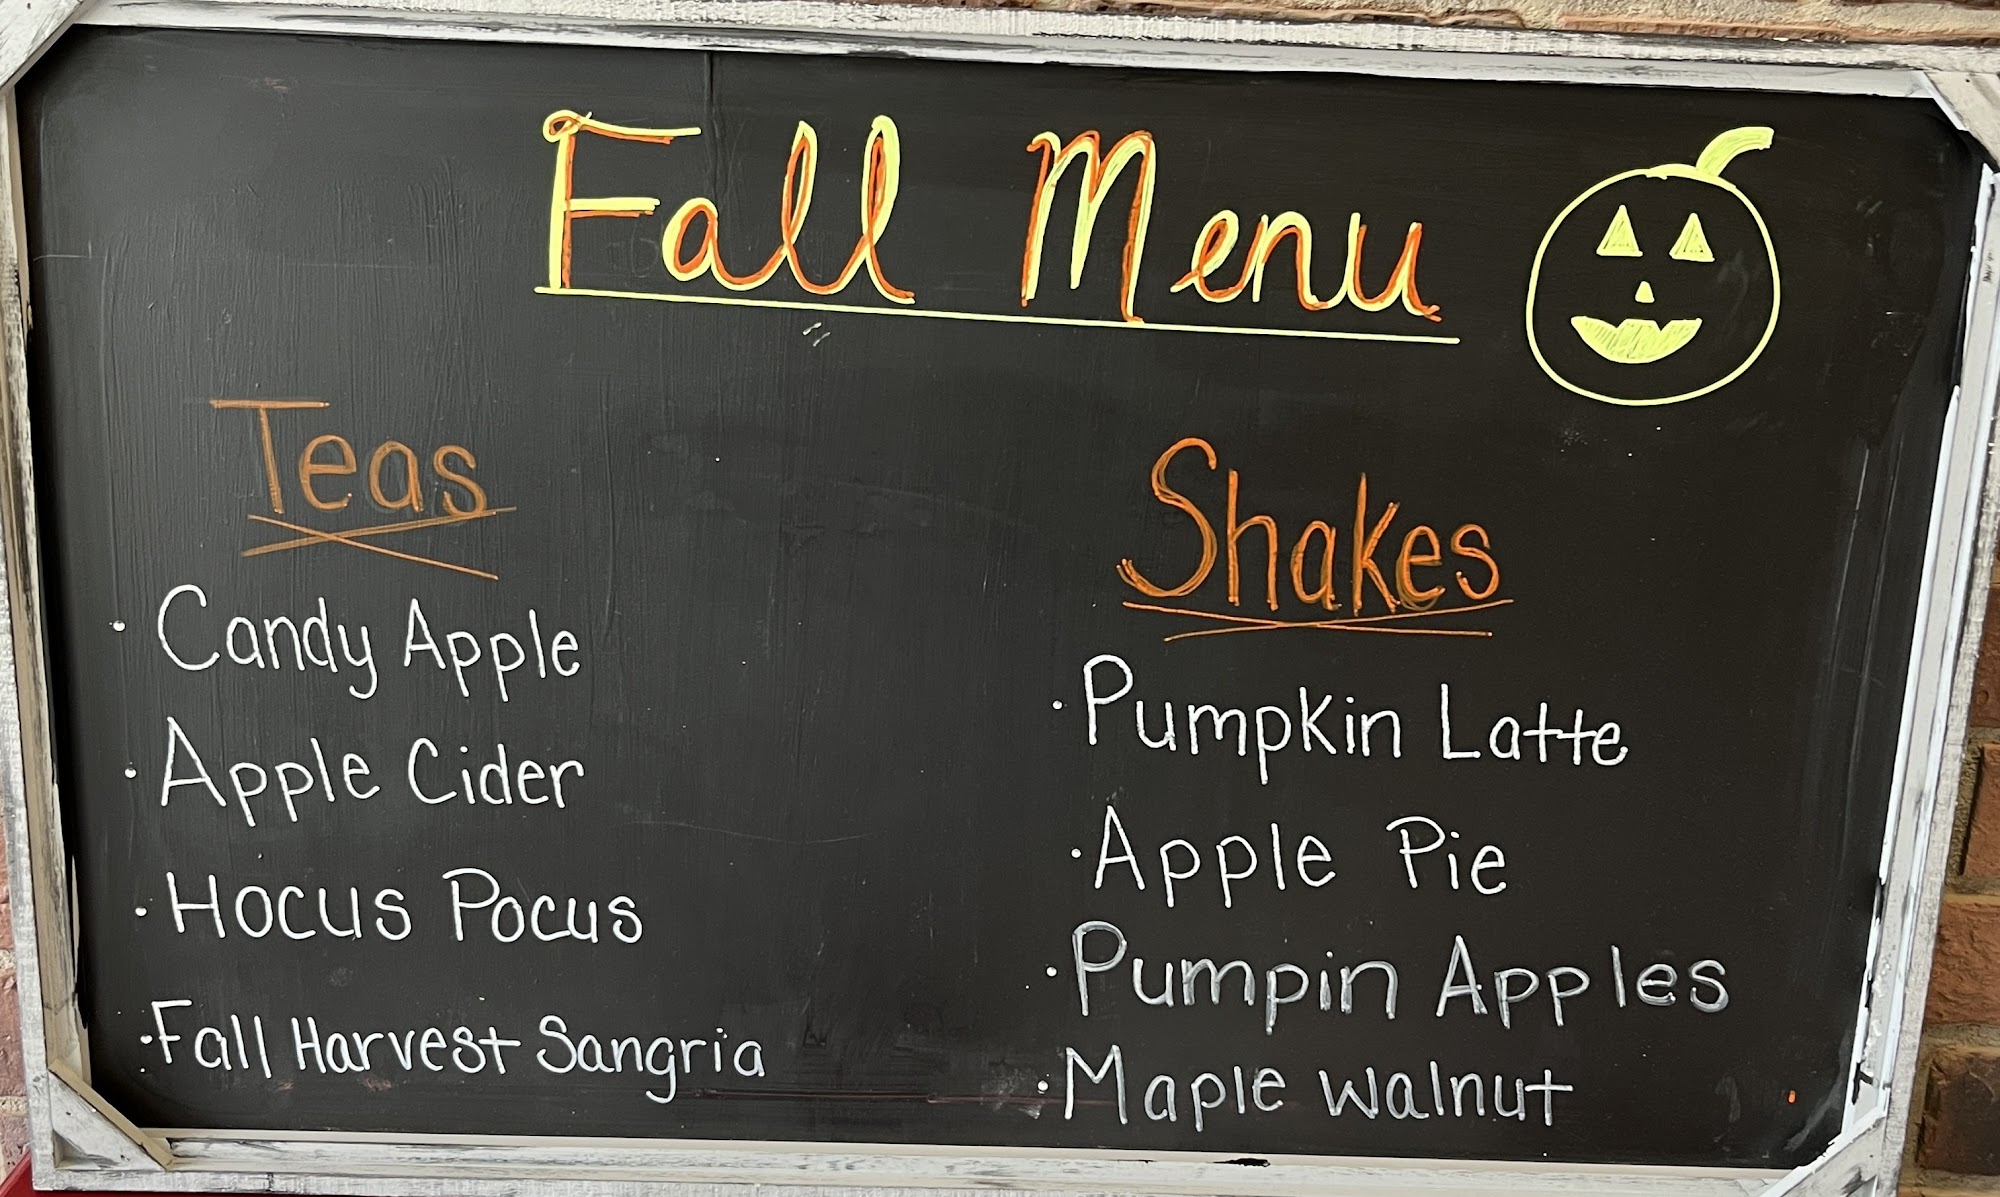 Fall Menu
Teas
· Candy Apple
· Apple Cider
· Hocus Pocus
· Fall Harvest Sangria
Shakes
· Pumpkin Latte
· Apple Pie
· Pumpin Apples
· Maple Walnut